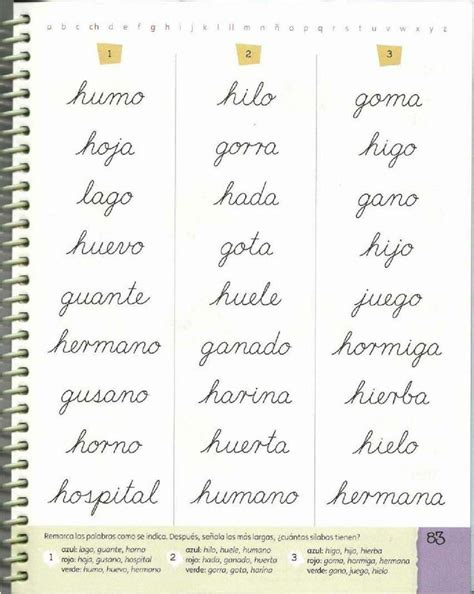 a b c ch d e f g h i j k l ll m n ñ o p q r s t u v w x y z
1
humo
hoja
lago
huevo
guante
hermano
gusano
horno
hospital
2
hilo
gorra
hada
gota
huele
ganado
harina
huerta
humano
3
goma
higo
gano
hijo
juego
hormiga
hierba
hielo
hermana
Remarca las palabras como se indica. Después, señala las más largas, ¿cuántas sílabas tienen?
1
azul: lago, guante, horno
rojo: hoja, gusano, hospital
verde: humo, huevo, hermano
2
azul: hilo, huele, humano
rojo: hada, ganado, huerta
verde: gorra, gota, harina
3
azul: higo, hijo, hierba
rojo: goma, hormiga, hermana
verde: gano, juego, hielo
83